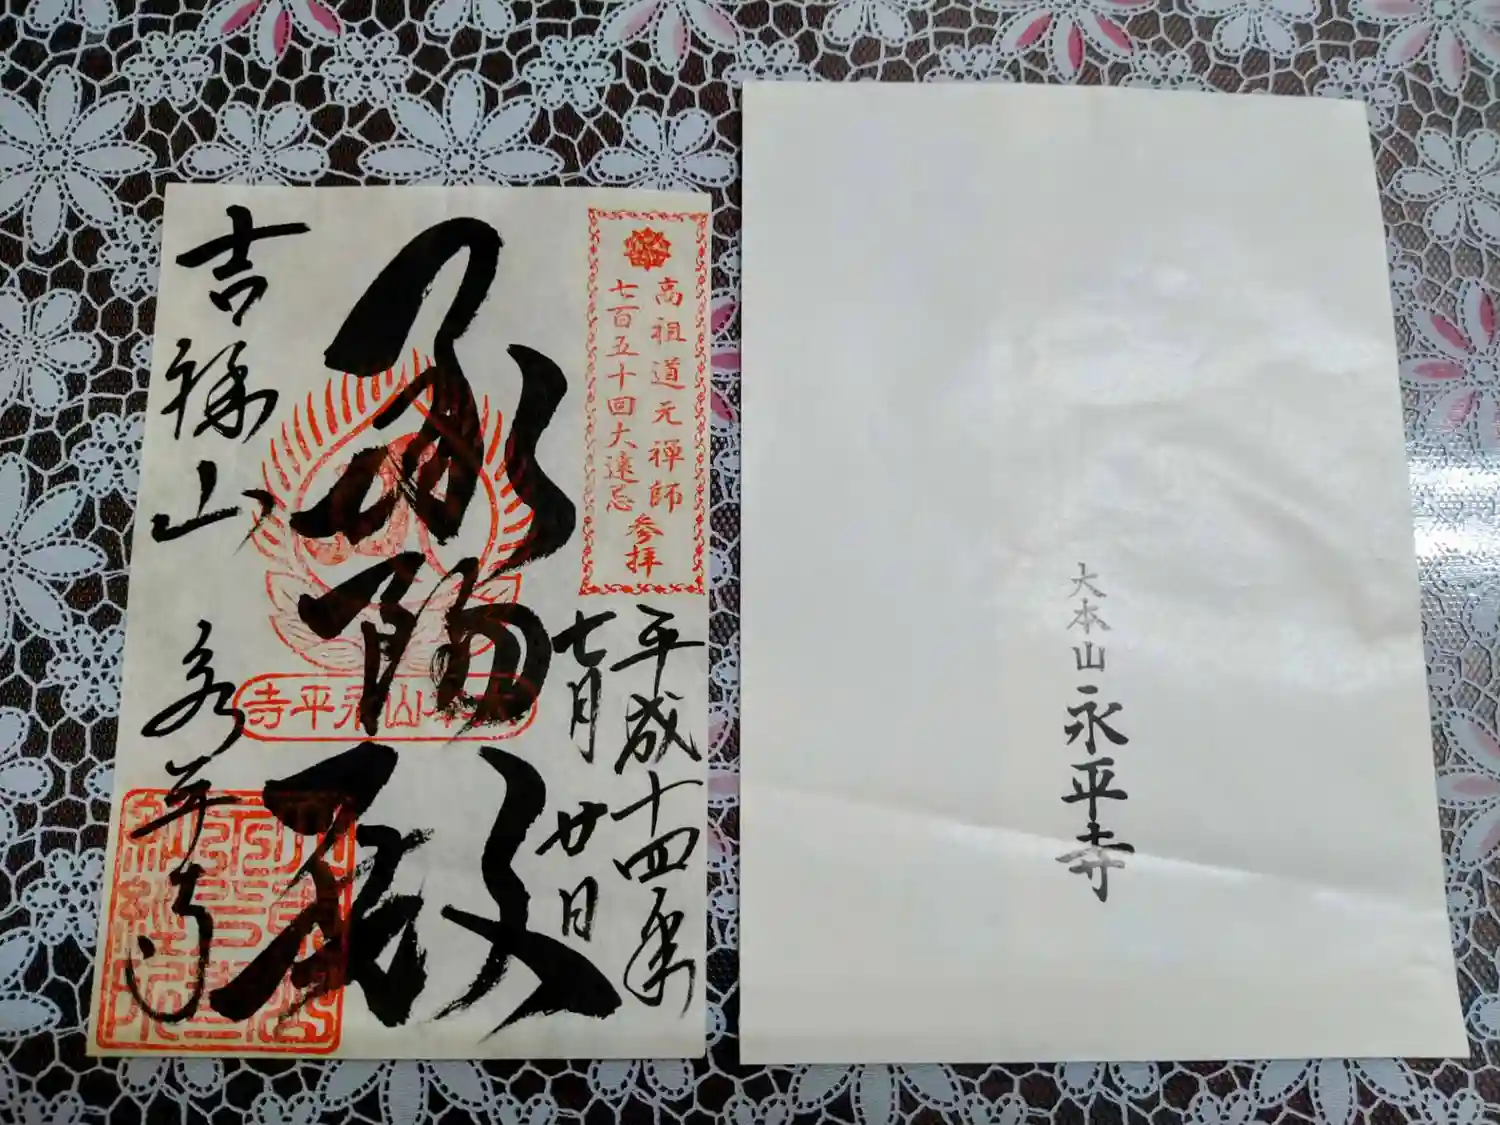 高祖道元禅師
七百五十回大遠忌
参拝
平成十四年
七月廿日
承陽殿
大本山永平寺
吉祥山
永平寺
大本山永平寺